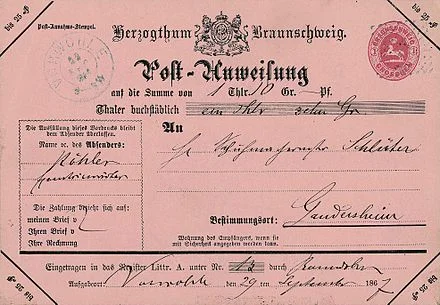 bis 25 fl
bis 25 fl
Post-Annahme-Stempel.
Herzogthum Braunschweig.
VORWOHLE
Post-Anweisung
auf die Summe von 1 Thlr. 10 Gr. — Pf.
Thaler buchstäblich ein thlr zehn Gr.
Die Ausfüllung dieses Vordrucks bleibt
dem Absender überlassen.
Name ec. des Absenders:
Köhler
An
Schlüter
Die Zahlung bezieht sich auf:
meinen Brief v
Ihren Brief v
Ihre Rechnung
Bestimmungsort: Gandersheim
Wohnung des Empfängers, wenn sie
mit Sicherheit angegeben werden kann.
Eingetragen in das Register Littr. A. unter Nr. 12 durch
Aufgabeort Vorwohle den 29 ten September 1867
bis 25 fl
bis 25 fl